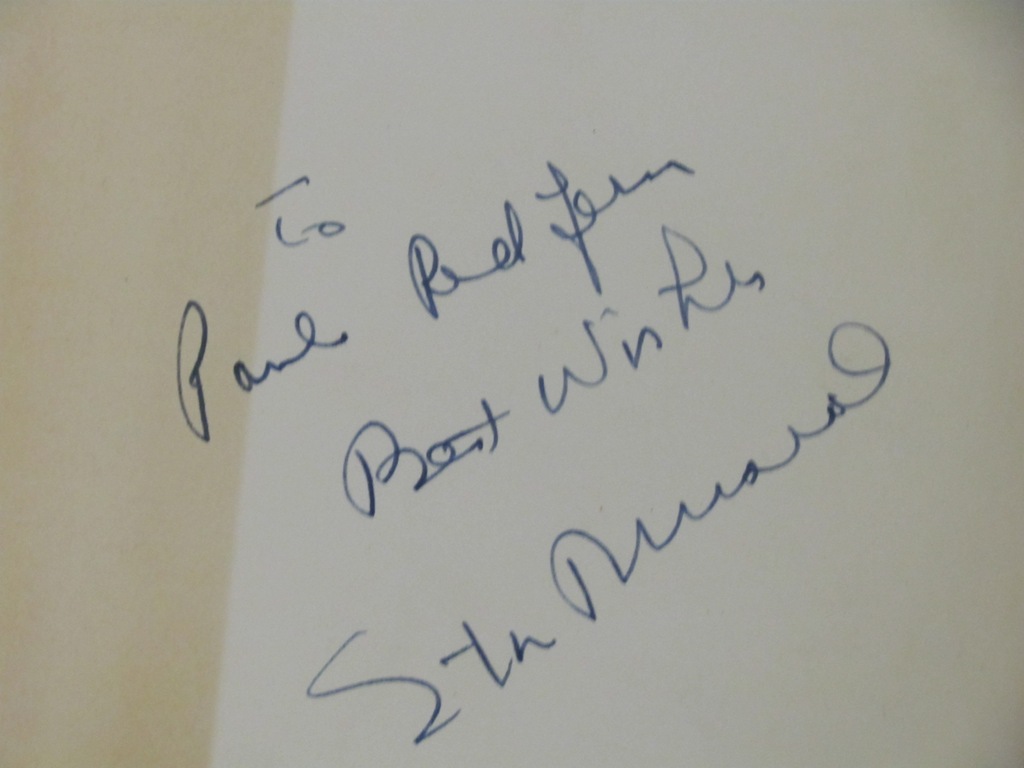 To
Paul Redfern
Best Wishes
Stan